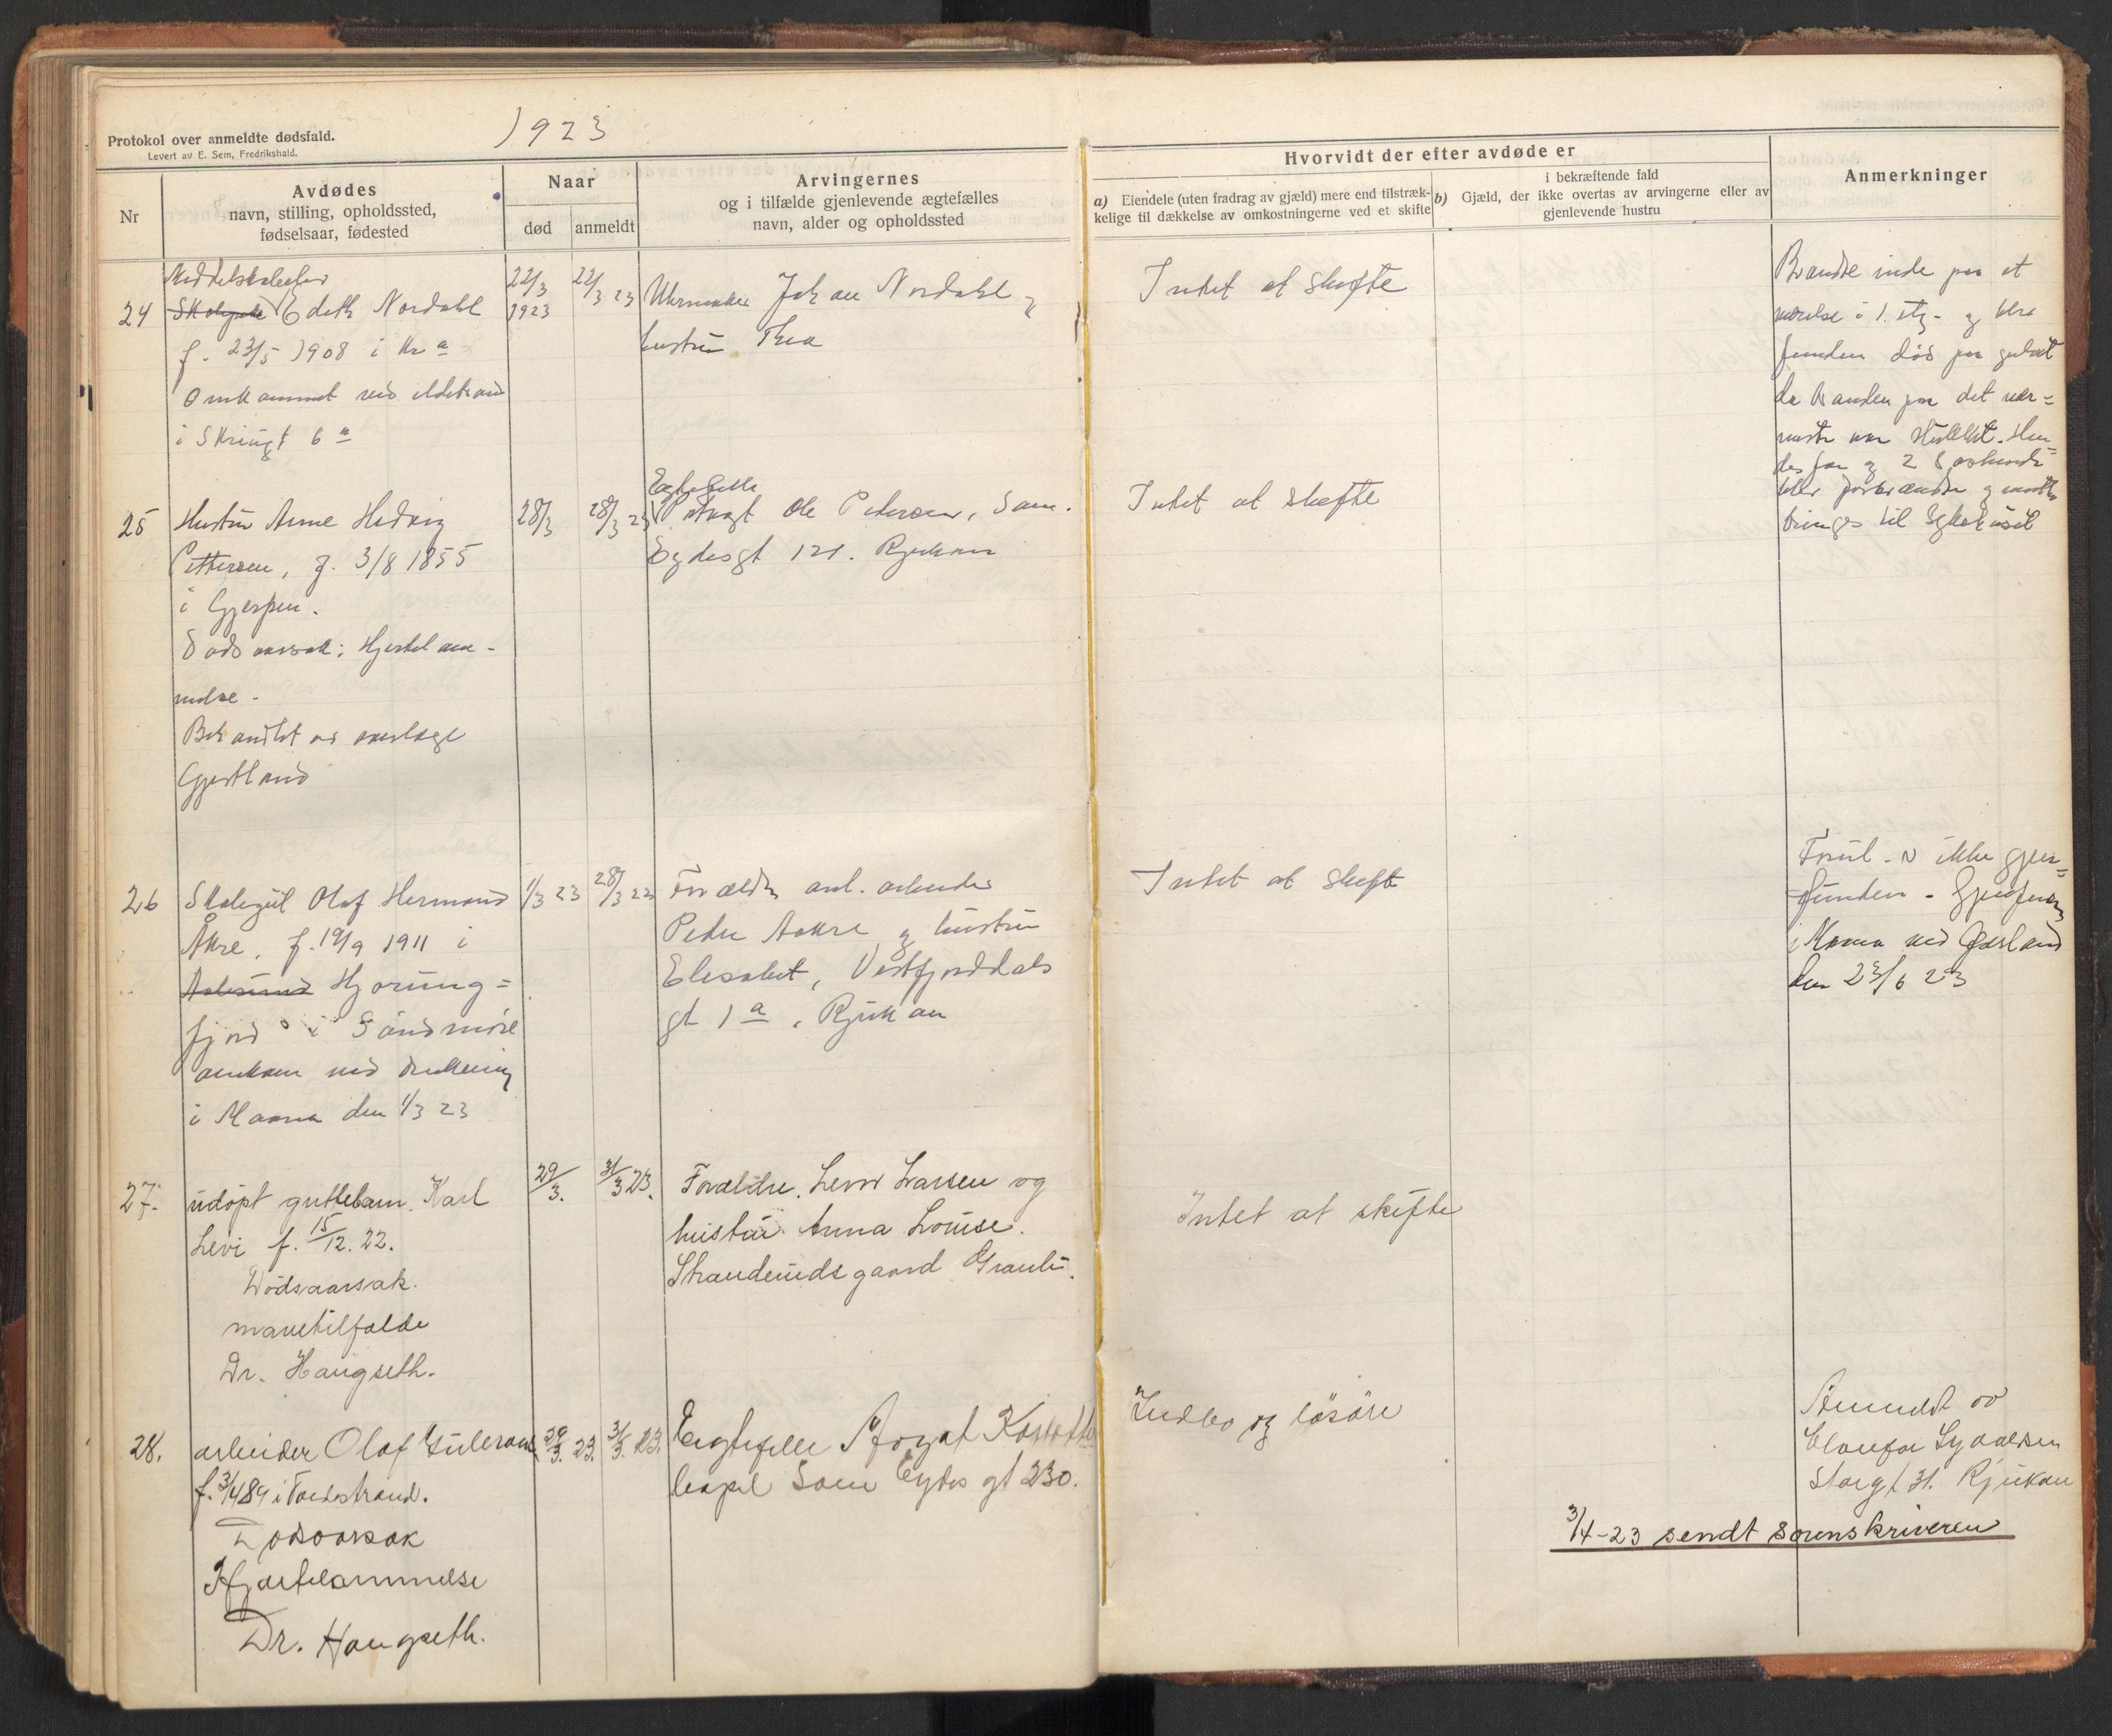 Protokol over anmeldte dødsfald.
Levert av E. Sem, Fredrikshald.
1923
Nr
Avdødes
navn, stilling, opholdssted,
fødselsaar, fødested
Naar
død
anmeldt
Arvingernes
og i tilfælde gjenlevende ægtefælles
navn, alder og opholdssted
Hvorvidt der efter avdøde er
a) Eiendele (uten fradrag av gjæld) mere end tilstræk-
kelige til dækkelse av omkostningerne ved et skifte
i bekræftende fald
b) Gjæld, der ikke overtas av arvingerne eller av
gjenlevende hustru
Anmerkninger
24
Middelskoleelev
Edith Nordahl
f. 23/5 1908 i Kr a
Omkommet ved ildebrand
i Skriugt 6 a
22/3
1923
22/3 23
Uhrmaker Johan Nordahl og
hustru Thea
Intet at skifte
Brændte inde paa et
værelse i 1. etg. og blev
funden død paa gulvet
da branden paa det nær=
meste var slukket. Hen=
des far og 2 søskende
blev forbrændte og maatte
bringes til sykehuset
25
Hustru Anne Hedvig
Pettersen, f. 3/8 1855
i Gjerpen.
Dødsaarsak: Hjertelam-
melse.
Behandlet av overlæge
Gjestland
28/3
28/3 23
Egtefelle
Ole Pedersen, Sam.
Eydesgt 121. Rjukan
Intet at skifte
26
Skolegut Olaf Hermand
Åkre, f. 19/9 1911 i
Aalesund Hjorung=
fjord i Søndmøre
omkom ved drukning
i Maana den 1/3 23
1/3 23
28/3 23
Forældre anl. arbeider
Peder Aakre og hustru
Elisabet, Vestfjorddals
gt 1 a, Rjukan
Intet at skifte
ikke gjen=
funden - Gjenfunden
i Maana ved Øverland
den 23/6 23
27.
udøpt guttebarn. Karl
Levi f. 15/12. 22.
Dødsaarsak.
mavetilfælde
Dr. Haugseth.
29/3.
31/3 23.
Forældre. Levor Larsen og
hustru Anna Louise.
Strandenidsgaard
Intet at skifte
28.
arbeider Olaf Gulerand
f. 3/4 89 i Tvedestrand.
Dødsaarsak
Hjertelammelse
Dr. Haugseth.
29/3. 23.
31/3. 23.
Egtefelle
Sam Eydes gt 230.
Indbo og løsøre
Anmeldt av
Storgt 31. Rjukan
3/4-23 sendt sorenskriveren